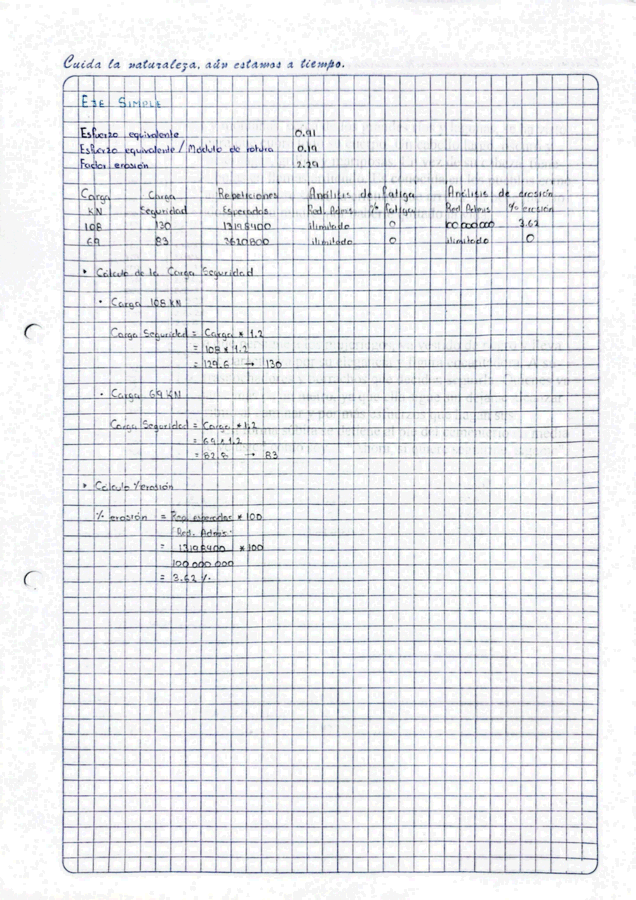 Cuida la naturaleza, aún estamos a tiempo.
EJE SIMPLE
Esfuerzo equivalente 0.91
Esfuerzo equivalente / Modulo de rotura 0.19
Factor erosión 2.29
Carga Carga Repeticiones Análisis de fatiga Análisis de erosión
KN Seguridad Esperadas Red. Adms % fatiga Red. Adms % erosión
108 130 13198400 ilimitado 0 100000000 3.62
69 83 3620800 ilimitado 0 ilimitado 0
Calculo de la Carga Seguridad
• Carga 108 KN
Carga Seguridad = Carga * 1.2
= 108 * 1.2
= 129.6 → 130
• Carga 69 KN
Carga Seguridad = Carga * 1.2
= 69 * 1.2
= 82.8 → 83
Calculo % erosión
% erosión = Rep. esperadas * 100
Red. Adms.
= 13198400 * 100
100 000 000
= 3.62 %